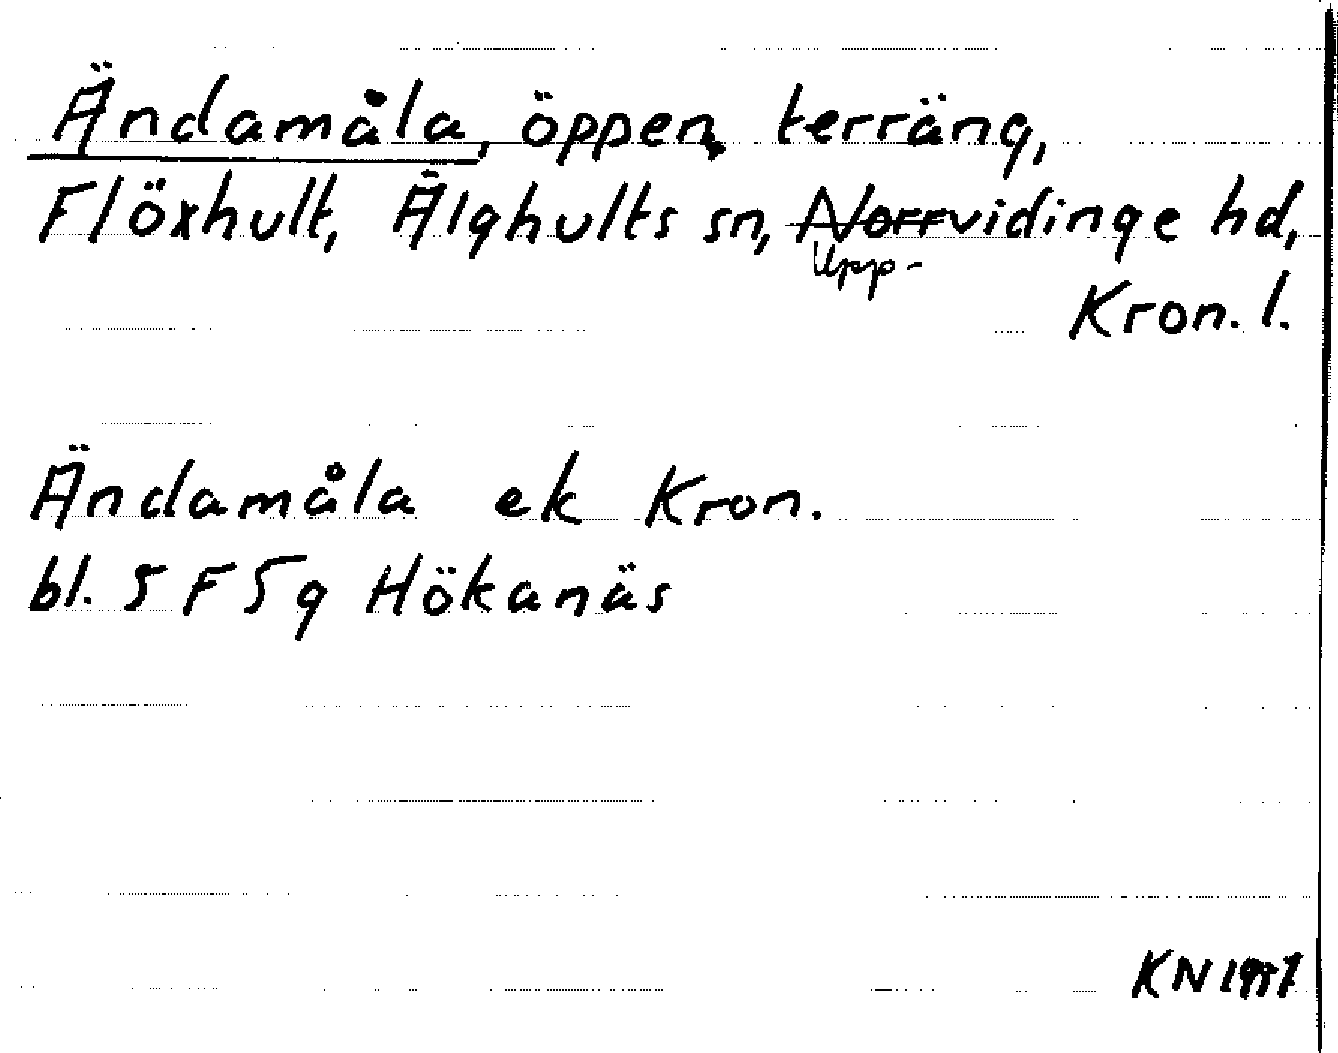 Ändamåla, öppen terräng,
Flöxhult, Älghults sn, Norrvidinge hd,
Upp-
Kron. l.
Ändamåla ek Kron.
bl. 5 F 5 g Hökanäs
KN